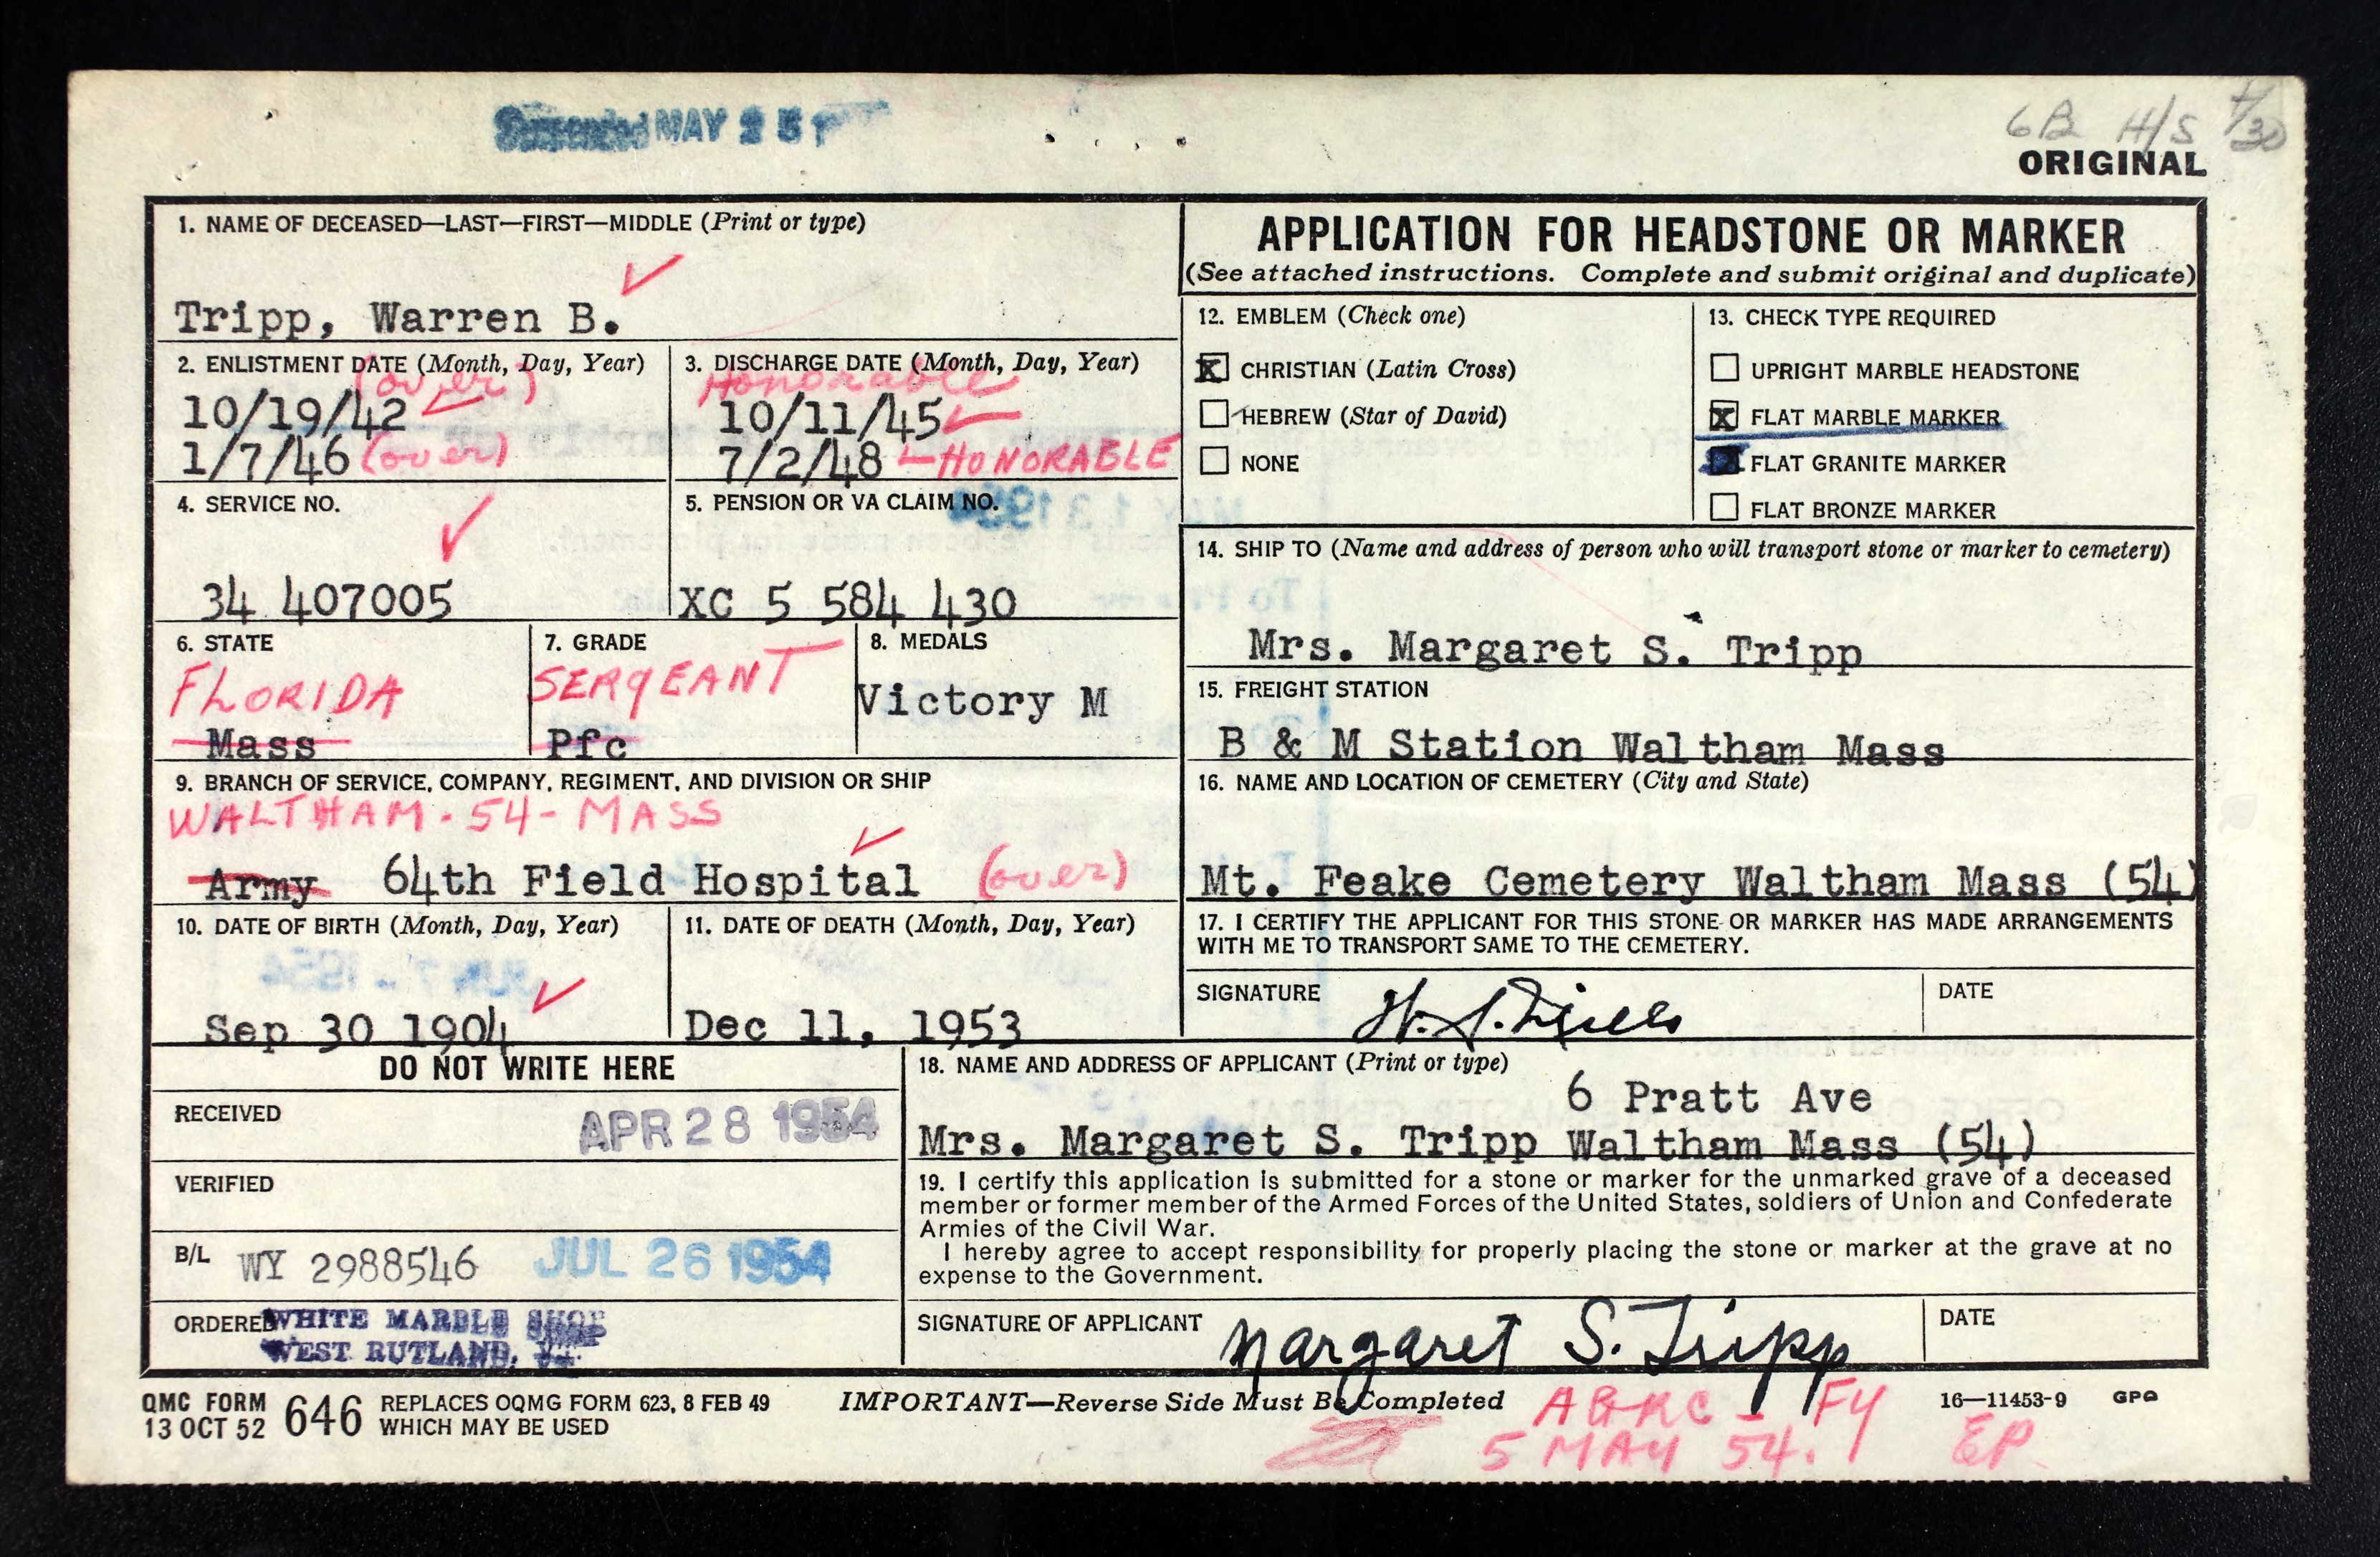 MAY 25
6B H/S 7/30
ORIGINAL
1. NAME OF DECEASED—LAST—FIRST—MIDDLE (Print or type)
Tripp, Warren B.
APPLICATION FOR HEADSTONE OR MARKER
(See attached instructions. Complete and submit original and duplicate)
2. ENLISTMENT DATE (Month, Day, Year)
(over)
10/19/42
1/7/46 (over)
3. DISCHARGE DATE (Month, Day, Year)
Honorable
10/11/45
7/2/48 - HONORABLE
12. EMBLEM (Check one)
X CHRISTIAN (Latin Cross)
HEBREW (Star of David)
NONE
13. CHECK TYPE REQUIRED
UPRIGHT MARBLE HEADSTONE
X FLAT MARBLE MARKER
FLAT GRANITE MARKER
FLAT BRONZE MARKER
4. SERVICE NO.
34 407005
5. PENSION OR VA CLAIM NO.
XC 5 584 430
14. SHIP TO (Name and address of person who will transport stone or marker to cemetery)
Mrs. Margaret S. Tripp
6. STATE
FLORIDA
Mass
7. GRADE
SERGEANT
Pfc
8. MEDALS
Victory M
15. FREIGHT STATION
B & M Station Waltham Mass
9. BRANCH OF SERVICE, COMPANY, REGIMENT, AND DIVISION OR SHIP
WALTHAM - 54 - MASS
Army 64th Field Hospital (over)
16. NAME AND LOCATION OF CEMETERY (City and State)
Mt. Feake Cemetery Waltham Mass (54)
10. DATE OF BIRTH (Month, Day, Year)
Sep 30 1904
11. DATE OF DEATH (Month, Day, Year)
Dec 11, 1953
17. I CERTIFY THE APPLICANT FOR THIS STONE OR MARKER HAS MADE ARRANGEMENTS
WITH ME TO TRANSPORT SAME TO THE CEMETERY.
SIGNATURE
DATE
DO NOT WRITE HERE
RECEIVED APR 28 1954
VERIFIED
B/L WY 2988546 JUL 26 1954
ORDERED WHITE MARBLE SHOP
WEST RUTLAND, VT.
18. NAME AND ADDRESS OF APPLICANT (Print or type)
6 Pratt Ave
Mrs. Margaret S. Tripp Waltham Mass (54)
19. I certify this application is submitted for a stone or marker for the unmarked grave of a deceased
member or former member of the Armed Forces of the United States, soldiers of Union and Confederate
Armies of the Civil War.
I hereby agree to accept responsibility for properly placing the stone or marker at the grave at no
expense to the Government.
SIGNATURE OF APPLICANT Margaret S. Tripp
DATE
QMC FORM 646 REPLACES OQMG FORM 623, 8 FEB 49
13 OCT 52 WHICH MAY BE USED
IMPORTANT—Reverse Side Must Be Completed
16—11453-9 GPO
AGRC - FY
5 MAY 54. EP